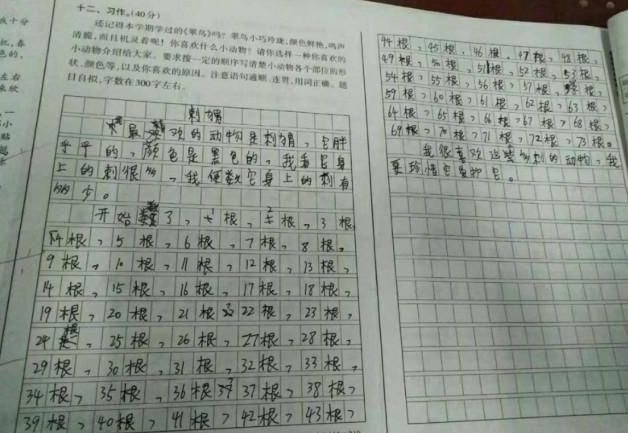 十二、习作。(40分)
还记得本学期学过的《翠鸟》吗?翠鸟小巧玲珑,颜色鲜艳,鸣声
清脆,而且机灵着呢!你喜欢什么小动物?请你选择一种你喜欢的
小动物介绍给大家。要求按一定的顺序写清楚小动物各个部位的形
状、颜色等,以及你喜欢的原因。注意语句通顺、连贯,用词正确。题
目自拟,字数在300字左右。
刺猬
我最喜欢的动物是刺猬,它胖
乎乎的,颜色是黑色的,我看它身
上的刺很多,我便数它身上的刺有
多少。
开始数了,1根,2根,3根,
4根,5根,6根,7根,8根,
9根,10根,11根,12根,13根,
14根,15根,16根,17根,18根,
19根,20根,21根,22根,23根,
24根,25根,26根,27根,28根,
29根,30根,31根,32根,33根,
34根,35根,36根,37根,38根,
39根,40根,41根,42根,43根,
44根,45根,46根,47根,48根,
49根,50根,51根,52根,53根,
54根,55根,56根,57根,58根,
59根,60根,61根,62根,63根,
64根,65根,66根,67根,68根,
69根,70根,71根,72根,73根。
我很喜欢这多刺的动物,我
要珍惜它爱护它。